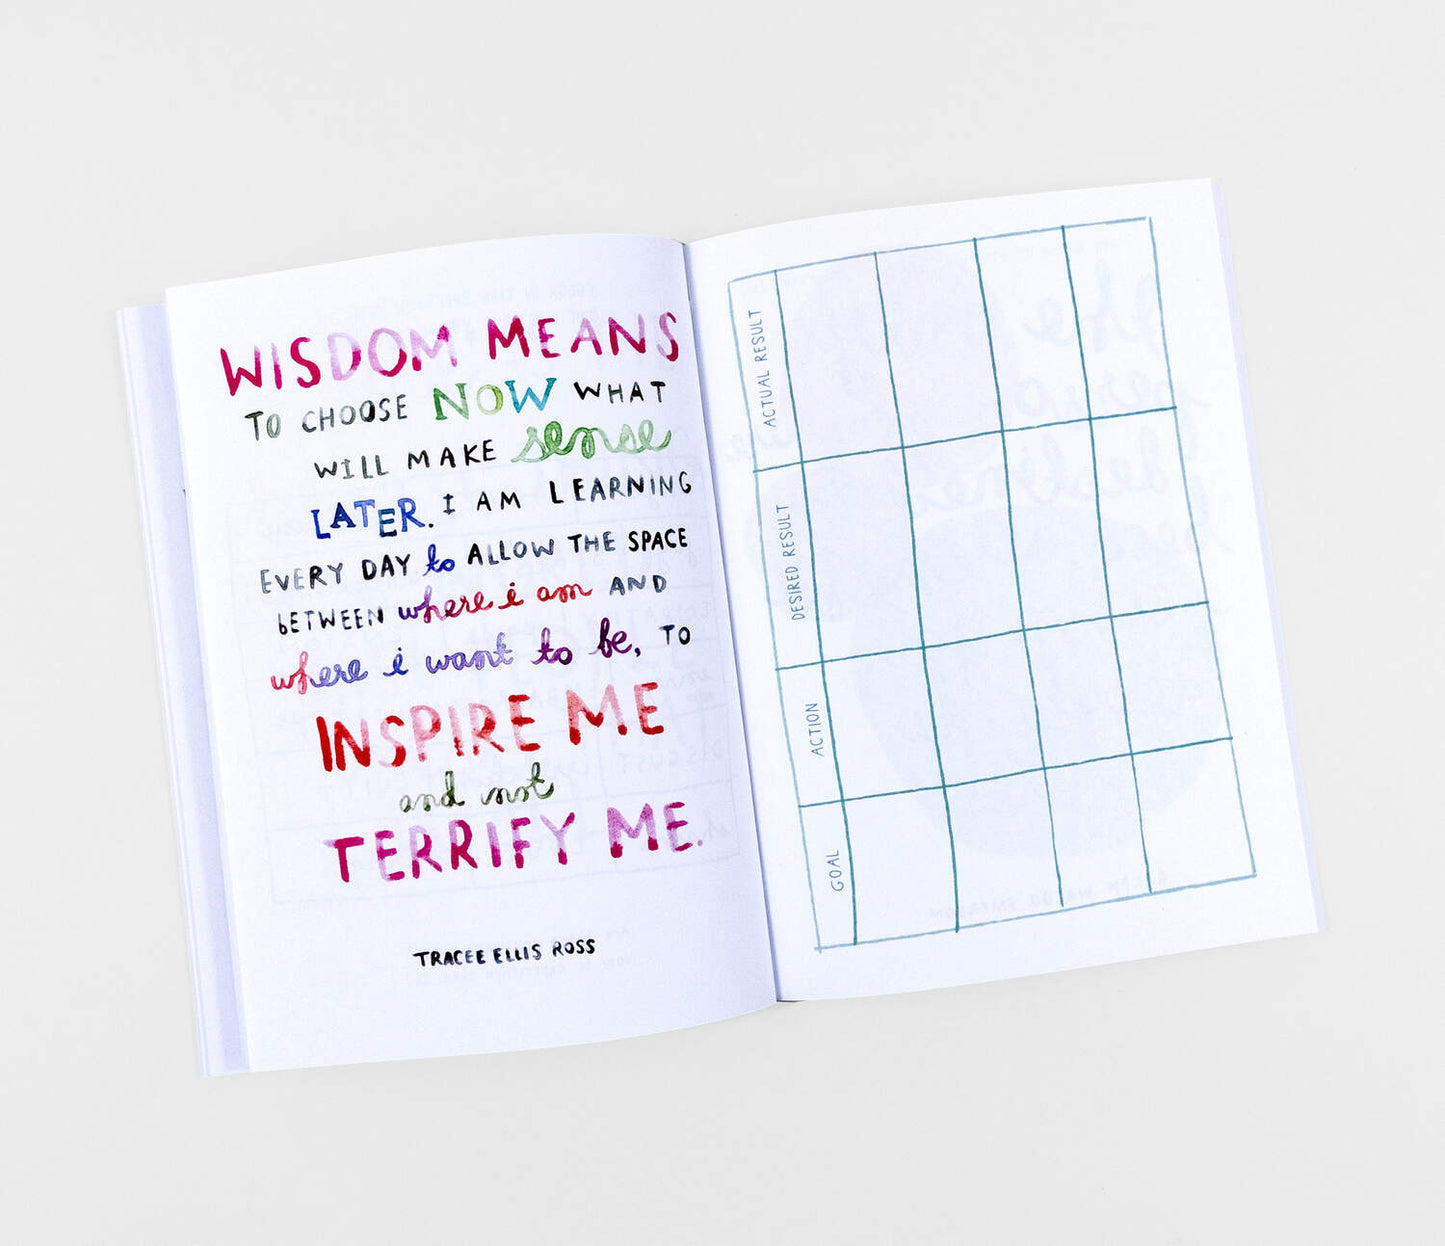 WISDOM MEANS
TO CHOOSE NOW WHAT
WILL MAKE sense
LATER. I AM LEARNING
EVERY DAY to ALLOW THE SPACE
BETWEEN where i am AND
where i want to be, TO
INSPIRE ME
and not
TERRIFY ME.
TRACEE ELLIS ROSS
GOAL
ACTION
DESIRED RESULT
ACTUAL RESULT